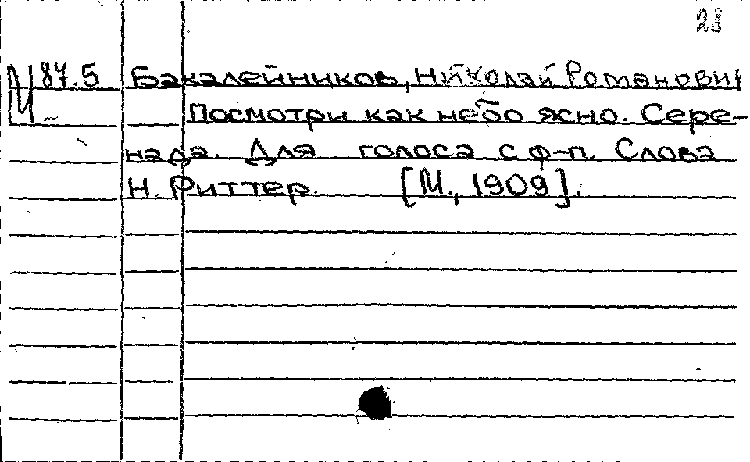 23
М 87.5 Бакалейников, Николай Романович
Посмотри как небо ясно. Сере-
нада. Для голоса с ф-п. Слова
Н. Риттер. [М., 1909].